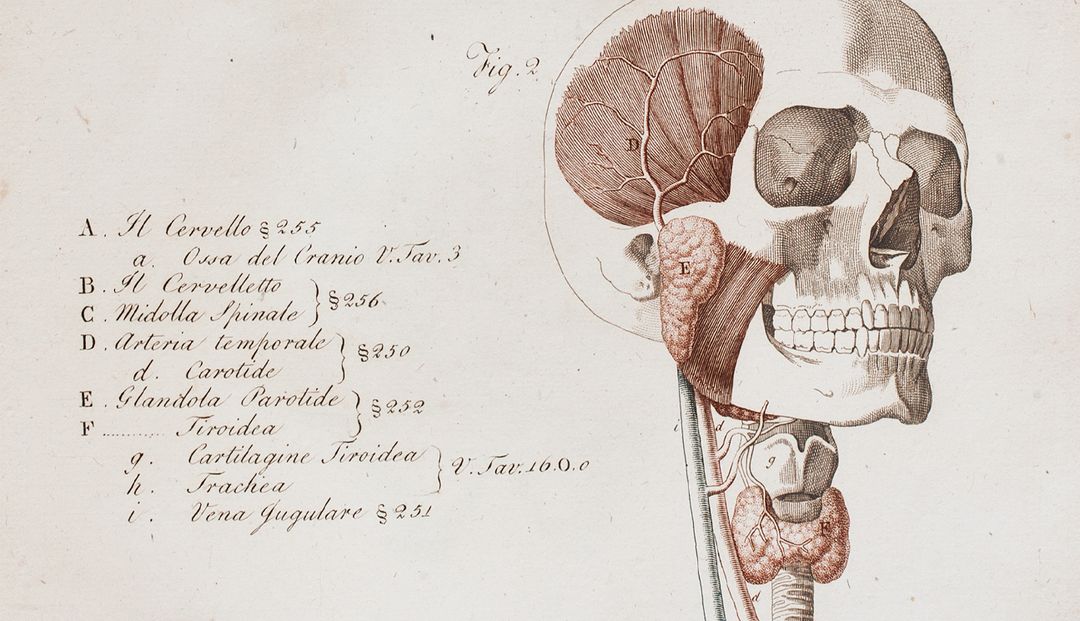 Fig. 2
A. Il Cervello § 255
a. Ossa del Cranio V. Tav. 3
B. Il Cervelletto
C. Midolla Spinale } § 256
D. Arteria temporale
d. Carotide } § 250
E. Glandola Parotide
F ........... Tiroidea } § 252
g. Cartilagine Tiroidea
h. Trachea } V. Tav. 16.0.0
i. Vena Jugulare § 251
D
E
i
d
g
F
d